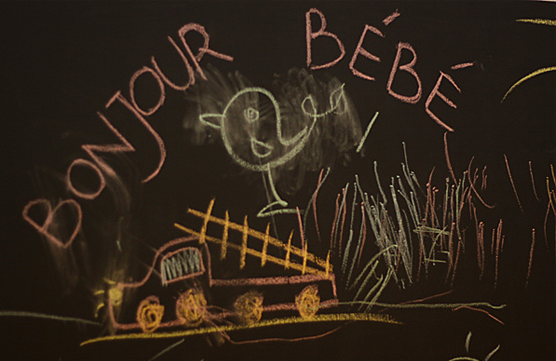 BONJOUR BÉBÉ